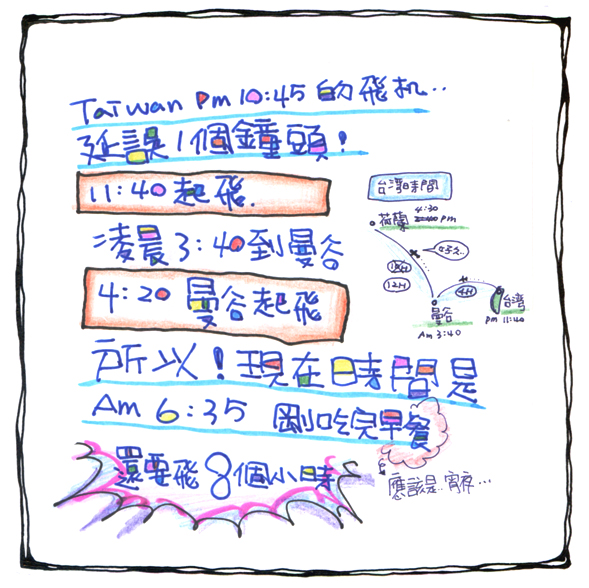 Taiwan Pm 10:45 的飛机..
延誤1個鐘頭!
11:40 起飛.
凌晨3:40到曼谷
4:20 曼谷起飛
所以!現在時間是
Am 6:35 剛吃完早餐
還要飛8個小時
應該是..宵夜...
台灣時間
荷蘭 4:30 pm
12H
4H
曼谷
Am 3:40
台湾
pm 11:40